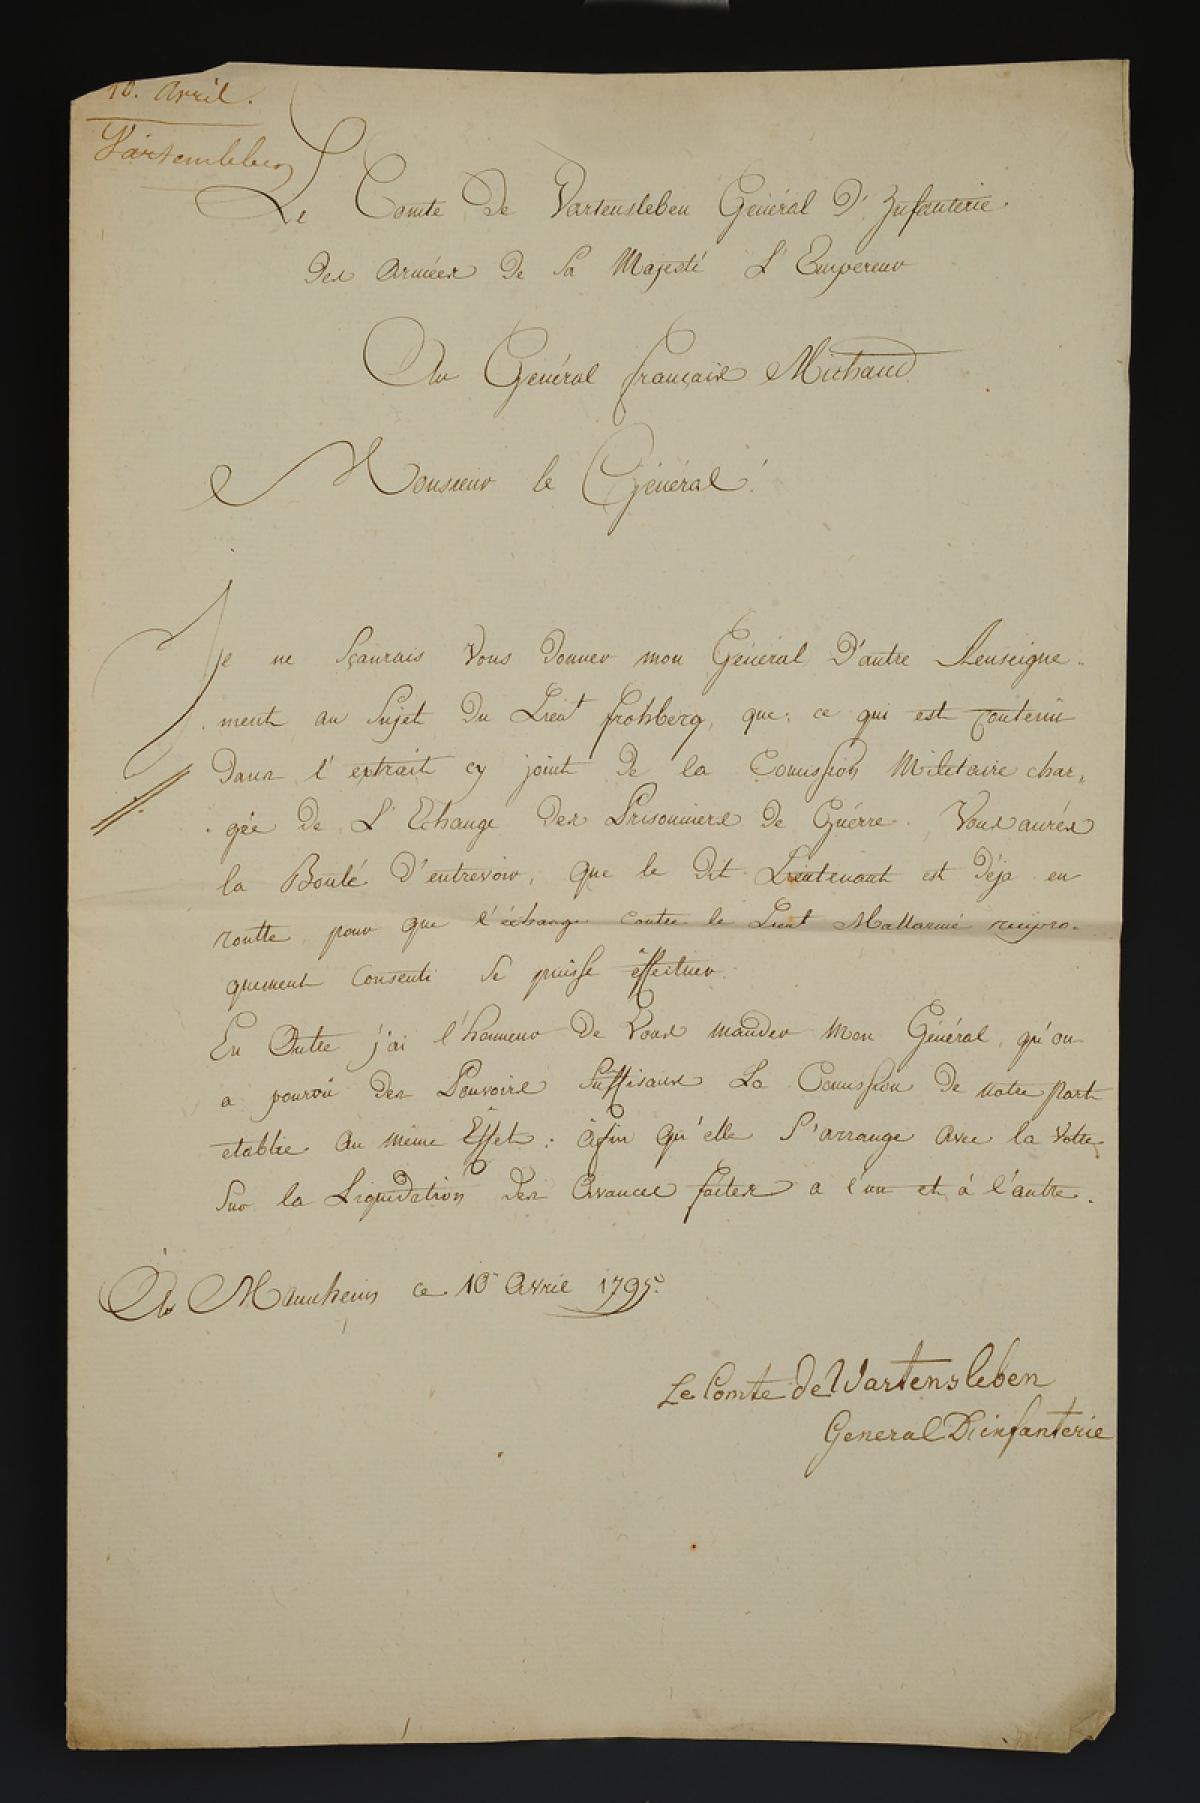 10. Avril.
Vartensleben
Le Comte De Vartensleben Général D'Infanterie
Des Armées De Sa Majesté L'Empereur
Au Général français Michaud
Monsieur le Général!
Je ne sçaurais Vous donner mon Général D'autre Renseigne-
ment au Sujet Du Lieut Frohberg, que, ce qui est contenu
Dans l'extrait cy joint de la Comission Militaire char-
gée de L'Echange Des Prisonniers De Guérre. Vous aurés
la Bonté D'entrevoir, que le Dit Lieutenant est Déja en
routte pour que l'échange contre le Lieut Mallarmé recipro-
quement consenti se puisse éffectuer.
En Outre j'ai l'honneur De Vous mander Mon Général, qu'on
a pourvû Des Pouvoirs Suffisans La Comission De notre part
etablie au même Effet: àfin qu'elle S'arrange avec la Votre
Sur la Liquidation Des Avances faites a l'un et à l'autre.
Au Mannheim ce 10 Avril 1795.
Le Comte de Wartensleben
General D'infanterie